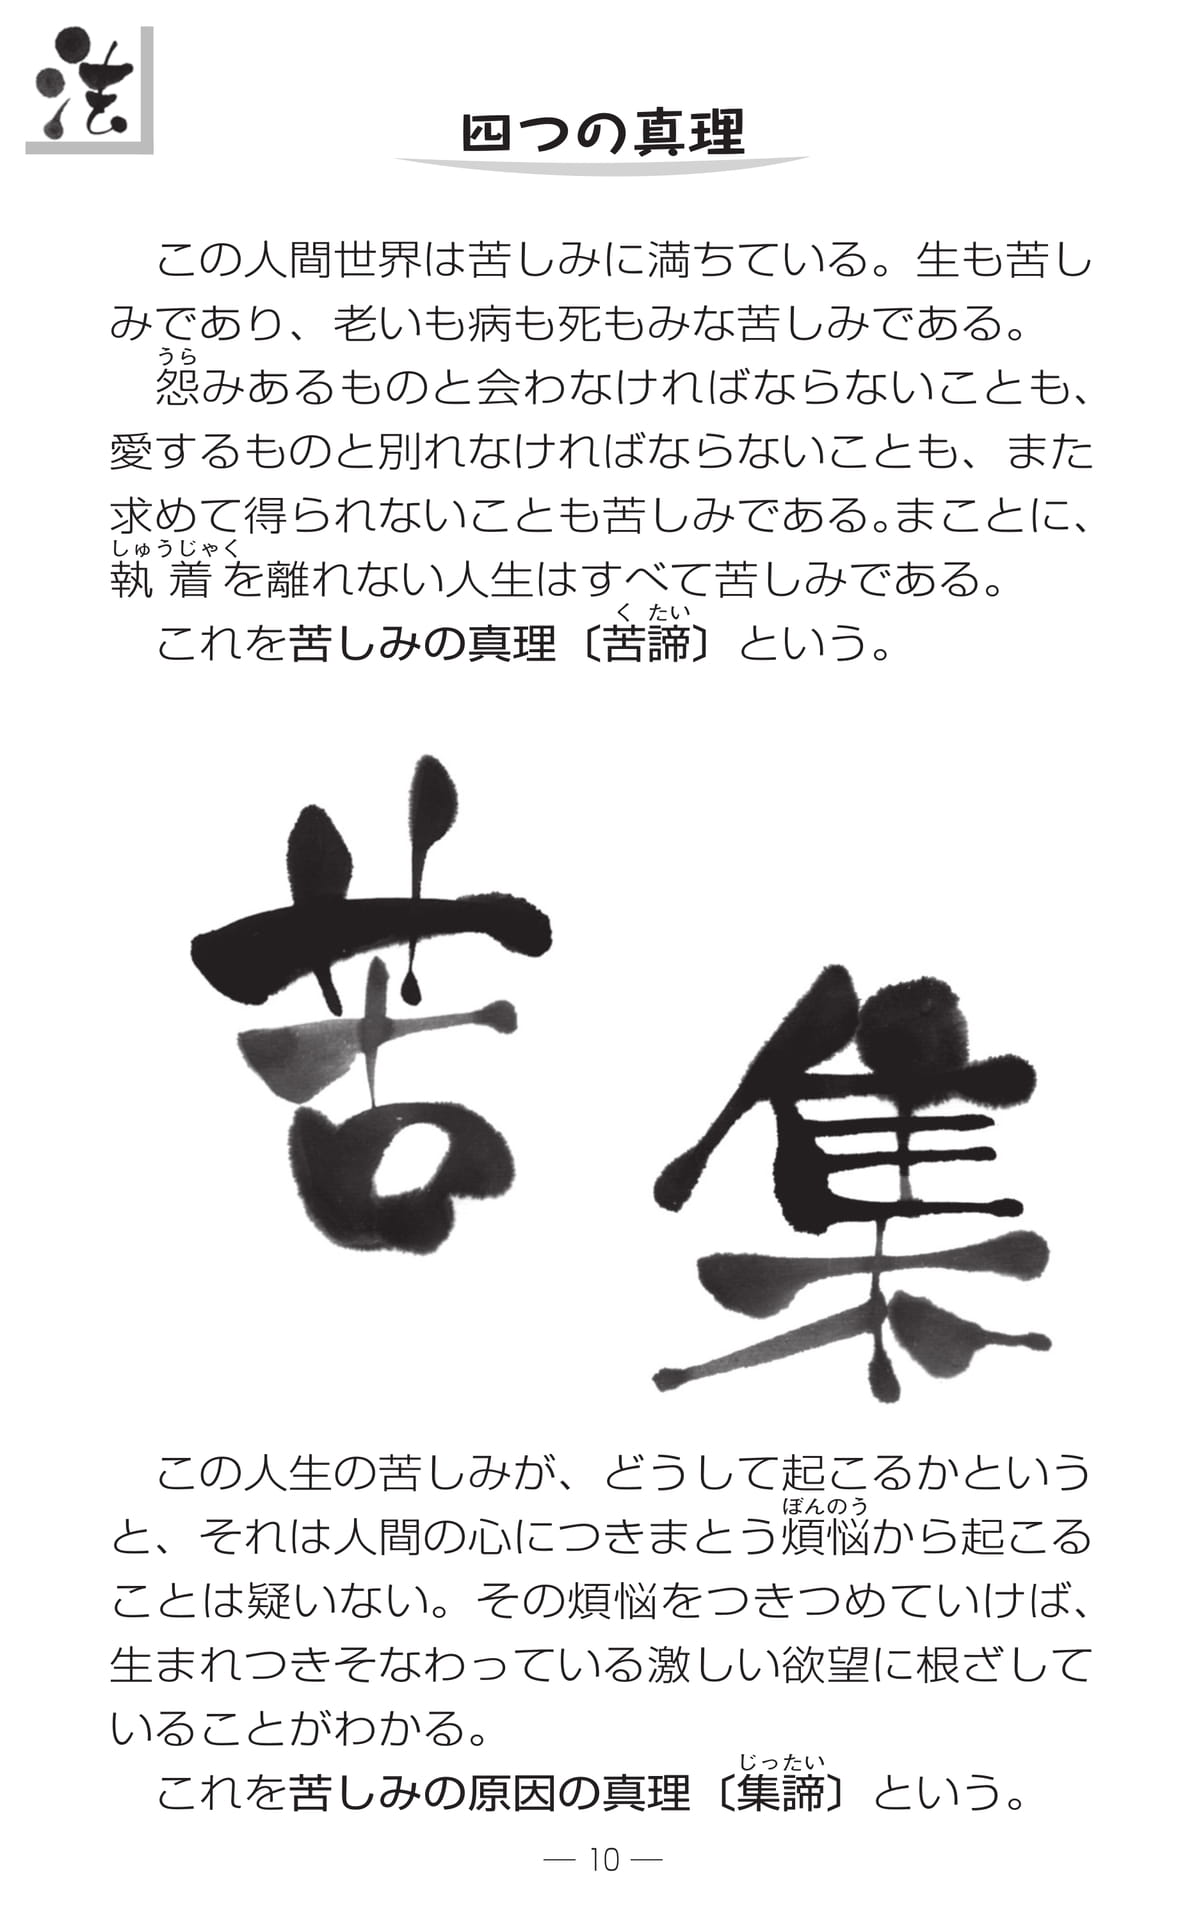 法
四つの真理
この人間世界は苦しみに満ちている。生も苦し
みであり、老いも病も死もみな苦しみである。
うら
怨みあるものと会わなければならないことも、
愛するものと別れなければならないことも、また
求めて得られないことも苦しみである。まことに、
しゅうじゃく
執着を離れない人生はすべて苦しみである。
く たい
これを苦しみの真理〔苦諦〕という。
苦
集
この人生の苦しみが、どうして起こるかという
ぼんのう
と、それは人間の心につきまとう煩悩から起こる
ことは疑いない。その煩悩をつきつめていけば、
生まれつきそなわっている激しい欲望に根ざして
いることがわかる。
じったい
これを苦しみの原因の真理〔集諦〕という。
— 10 —